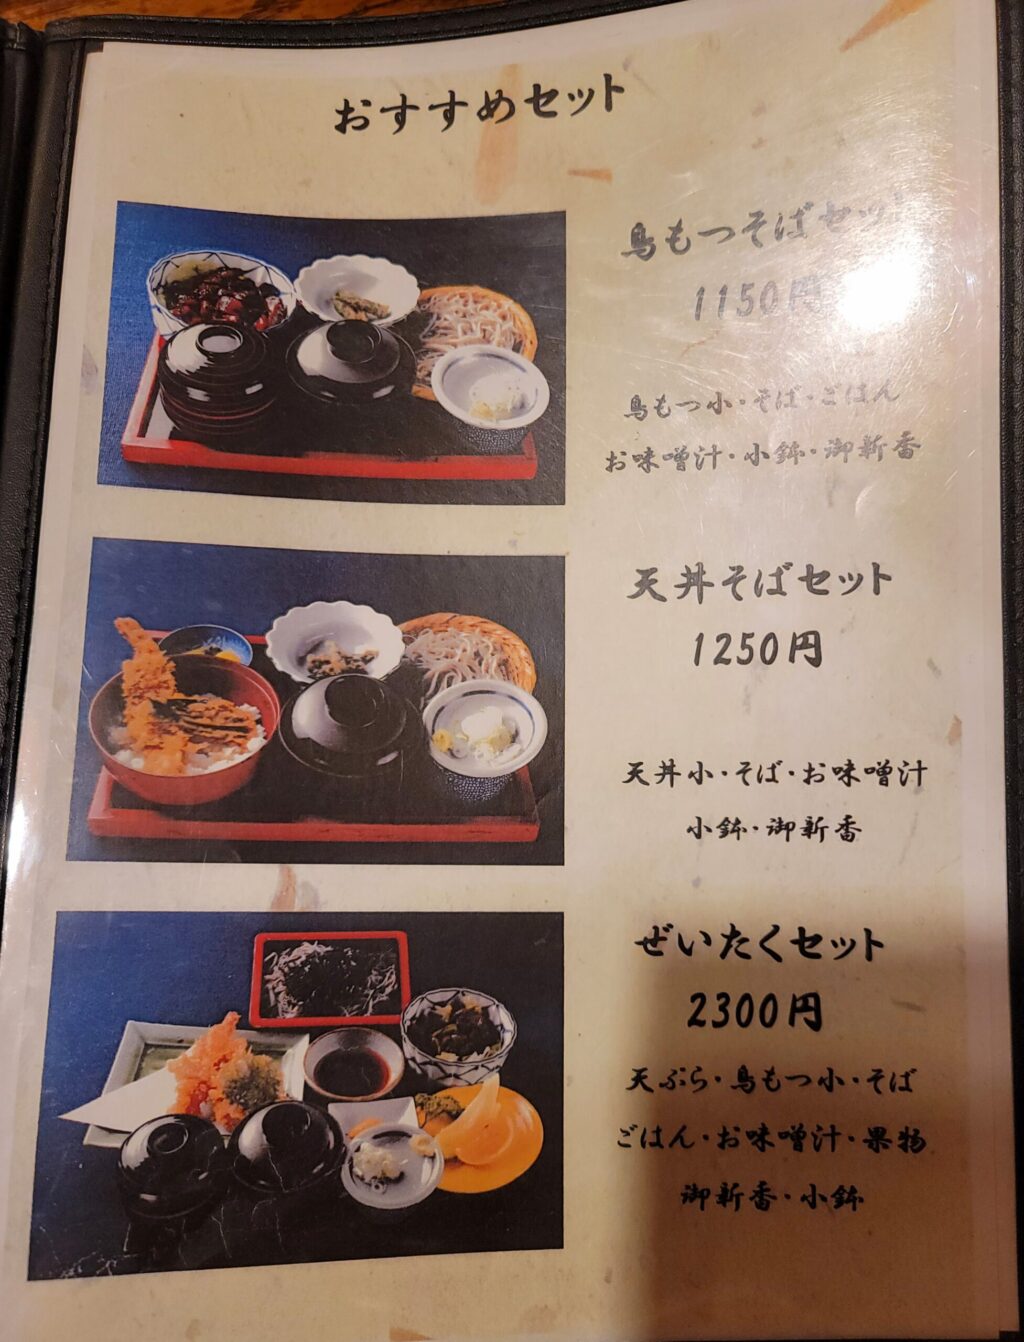 おすすめセット
鳥もつそばセット
1150円
鳥もつ小・そば・ごはん
お味噌汁・小鉢・御新香
天丼そばセット
1250円
天丼小・そば・お味噌汁
小鉢・御新香
ぜいたくセット
2300円
天ぷら・鳥もつ小・そば
ごはん・お味噌汁・果物
御新香・小鉢